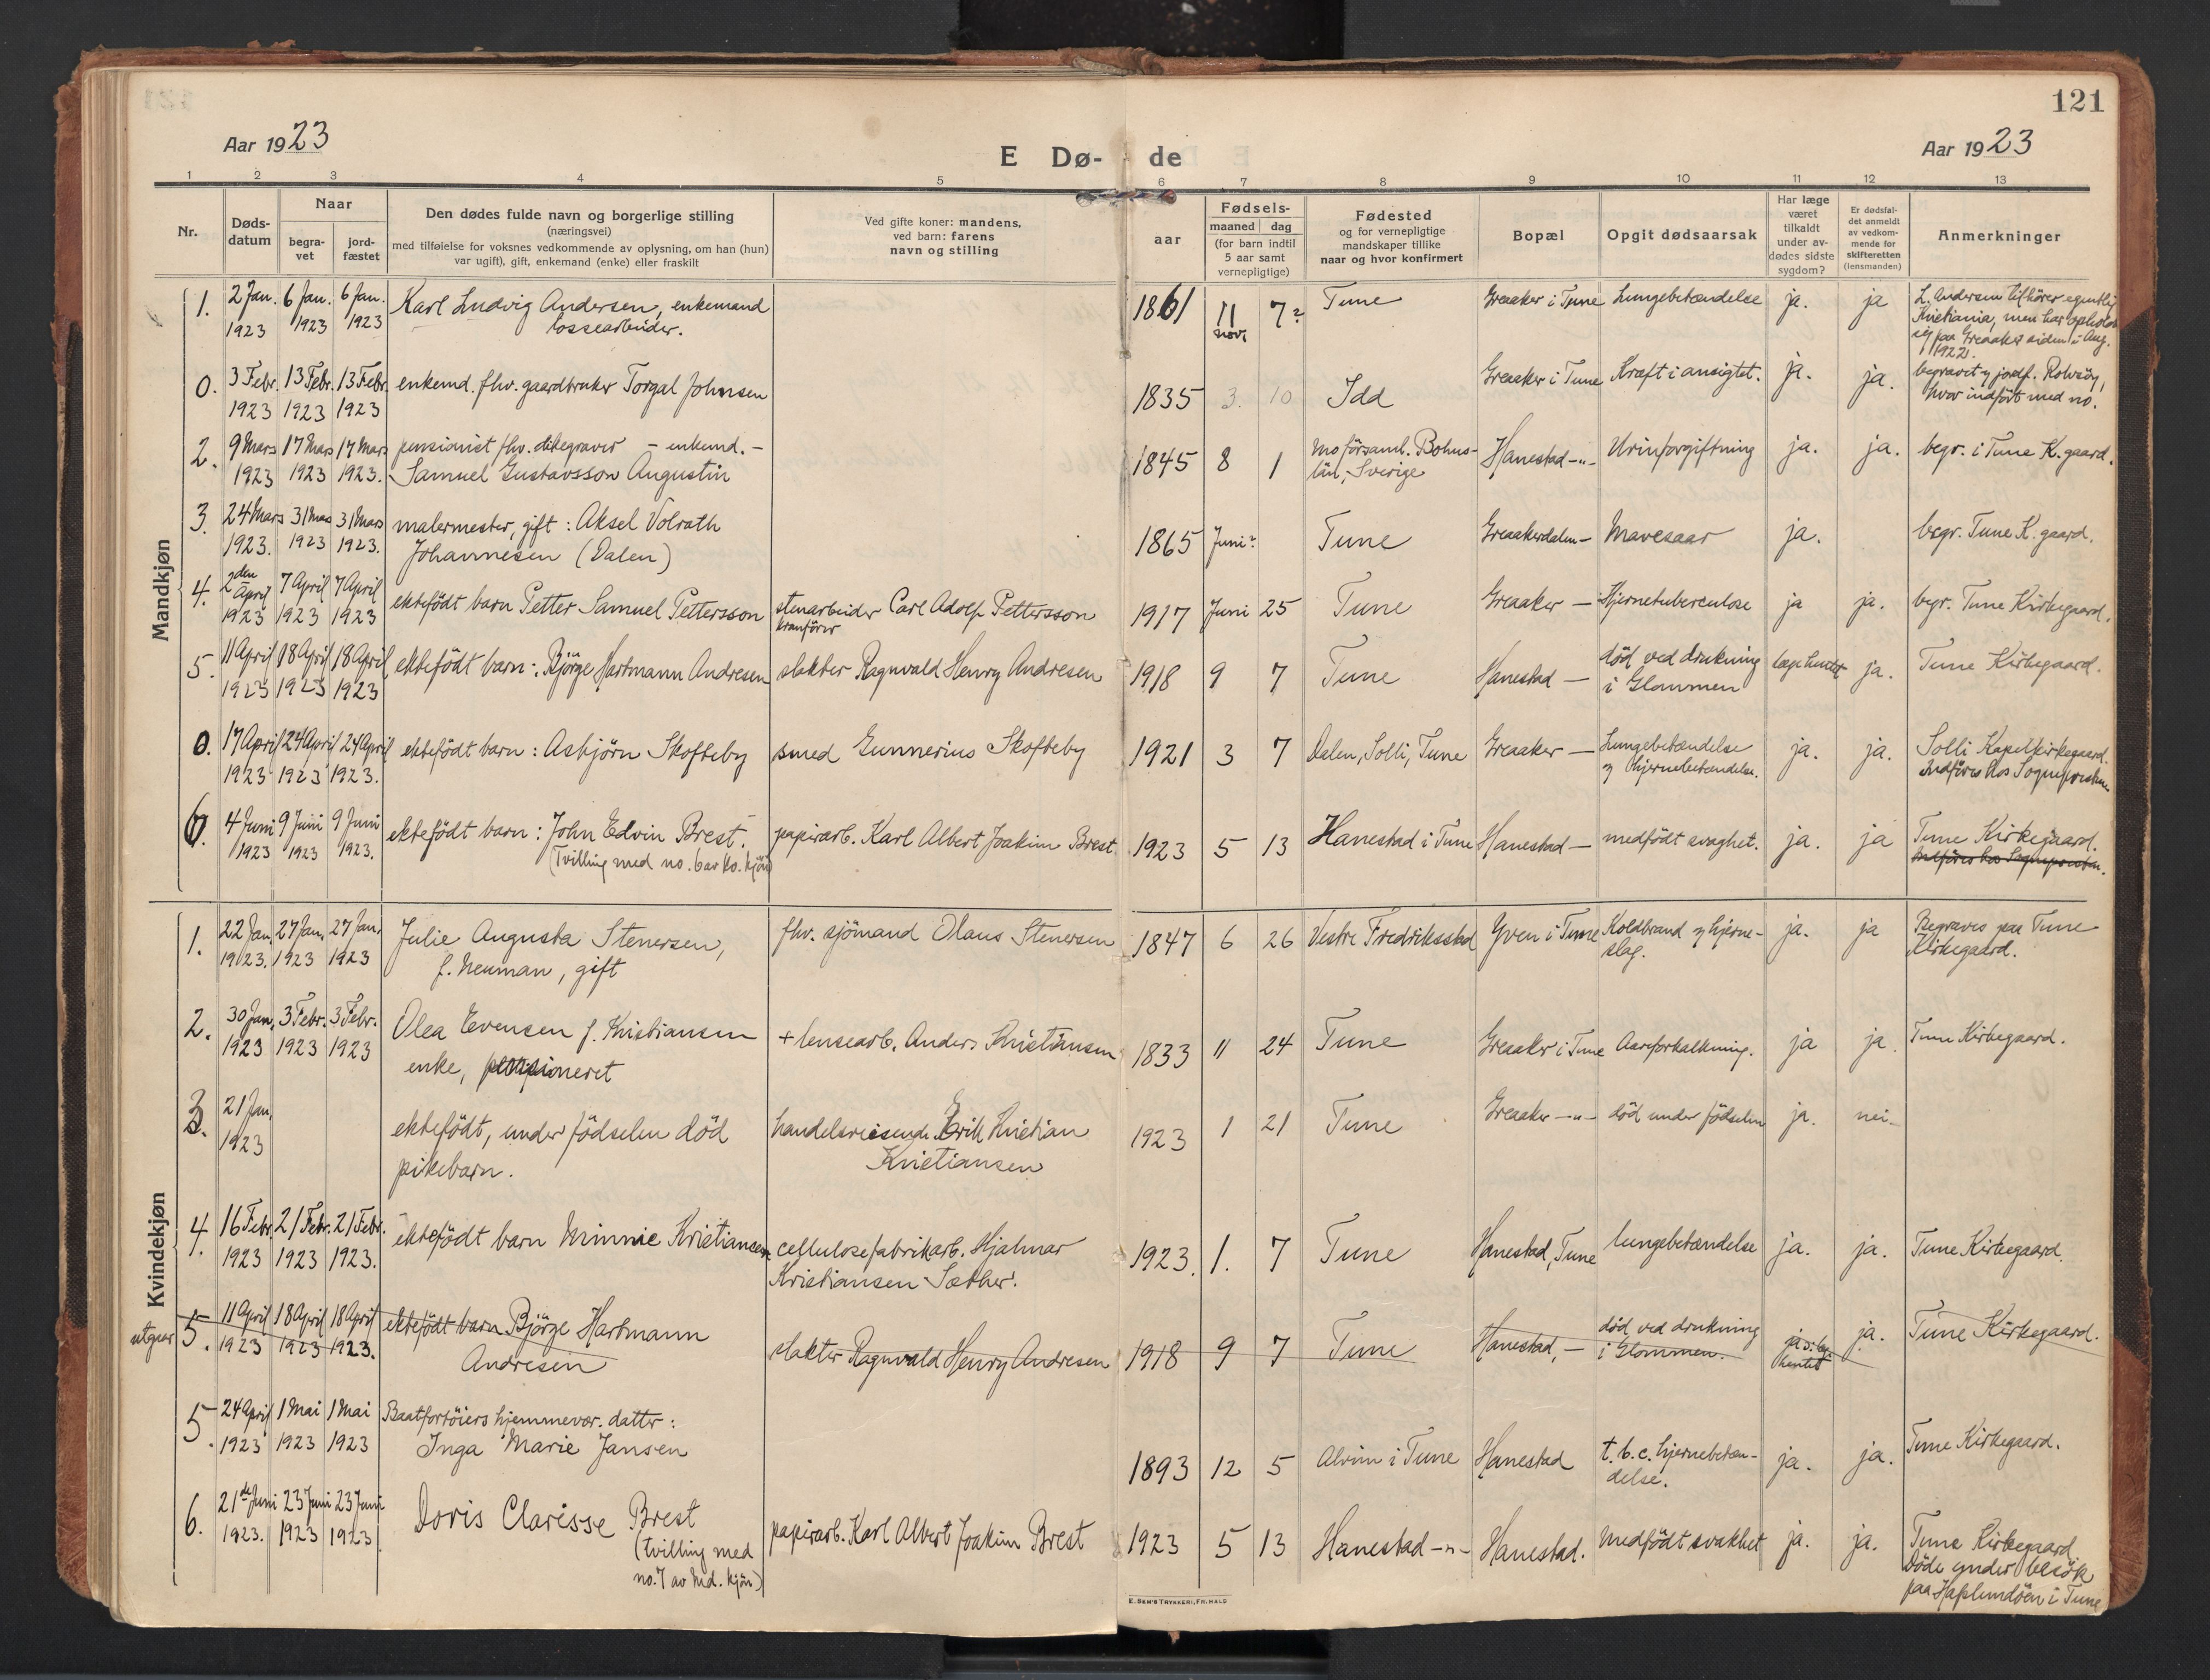 121
Aar 1923
E Dø- de
Aar 1923
1 2 3 4 5 6 7 8 9 10 11 12 13
Nr.
Døds-
datum
Naar
begra-
vet
jord-
fæstet
Den dødes fulde navn og borgerlige stilling
(næringsvei)
med tilføielse for voksnes vedkommende av oplysning, om han (hun)
var ugift), gift, enkemand (enke) eller fraskilt
Ved gifte koner: mandens,
ved barn: farens
navn og stilling
aar
Fødsels-
maaned dag
(for barn indtil
5 aar samt
vernepligtige)
Fødested
og for vernepligtige
mandskaper tillike
naar og hvor konfirmert
Bopæl
Opgit dødsaarsak
Har læge
været
tilkaldt
under av-
dødes sidste
sygdom?
Er dødsfal-
det anmeldt
av vedkom-
mende for
skifteretten
(lensmanden)
Anmerkninger
Mandkjøn
1. 2 Jan. 6 Jan. 6 Jan. Karl Ludvig Andersen, enkemand 1861 11 7? Tune Greaaker i Tune Lungebetændelse ja. ja L. Andersen tilhører egentlig
1923 1923 1923 lossearbeider. nov. Kristiania, men har opholdt
sig paa Greaaker siden i Aug.
1922.
0. 3 Febr. 13 Febr. 13 Febr. enkemd. fhv. gaardbruker Torgal Johnsen 1835 3. 10 Idd Greaaker i Tune Kræft i ansigtet. ja. ja. begravet og jordf. Rolvsöy,
1923 1923 1923 hvor indfört med no.
2. 9 Mars 17 Mars 17 Mars pensionist fhv. dikegraver – enkemd. – 1845 8 1 Mo församl. Bohus- Hanestad -"- Urinforgiftning ja. ja. begr. i Tune K.gaard.
1923 1923 1923. Samuel Gustavsson Augustin län, Sverige
3. 24 Mars 31 Mars 31 Mars malermester, gift: Aksel Volrath 1865 Juni? Tune Greaakerdalen – Mavesaar ja. begr. Tune K. gaard.
1923. 1923 1923. Johannesen (Dalen)
4. 2den April 7 April 7 April ektefödt barn Petter Samuel Pettersson stenarbeider Carl Adolf Pettersson 1917 Juni 25 Tune Greaaker – Hjernetuberculose ja ja. begr. Tune Kirkegaard.
1923 1923 1923 kranförer
5. 11 April 18 April 18 April ektefödt barn: Björge Hartmann Andresen slakter Ragnvald Henry Andresen 1918 9 7 Tune Hanestad – död ved drukning læge hentet ja. Tune Kirkegaard.
1923 1923 1923 i Glommen
0. 17 April 24 April 24 April ektefödt barn: Asbjörn Skofteby smed Gunnerius Skofteby 1921 3 7 Dalen, Solli, Tune Greaaker – Lungebetændelse ja. ja. Solli Kapelkirkegaard.
1923 1923 1923. og hjernebetændelse. Indföres hos Sognepresten
6. 4 Juni 9 Juni 9 Juni ektefödt barn: John Edvin Brest. papirarb. Karl Albert Joakim Brest 1923 5 13 Hanestad i Tune Hanestad – medfödt svaghet. ja. ja Tune Kirkegaard.
1923 1923 1923. (Tvilling med no. 6 av kv. kjön) Indföres hos Sognepresten.
Kvindekjøn
1. 22 Jan. 27 Jan. 27 Jan. Julie Augusta Stenersen, fhv. sjömand Olaus Stenersen 1847 6 26 Vestre Fredriksstad Yven i Tune Koldbrand og hjerne- ja. ja Begraves paa Tune
1923. 1923 1923 f. Neuman, gift slag. Kirkegaard.
2. 30 Jan. 3 Febr. 3 Febr. Olea Evensen f. Kristiansen + lensearb. Anders Kristiansen 1833 11 24 Tune Greaaker i Tune Aareforkalkning. ja ja. Tune Kirkegaard.
1923 1923 1923 enke, pensioneret
3. 21 Jan. ektefödt, under födselen död handelsreisende Erik Kristian 1923 1 21 Tune Greaaker -"- död under födselen ja. nei.
1923 pikebarn. Kristiansen
4. 16 Febr. 21 Febr. 21 Febr. ektefödt barn Minnie Kristiansen cellulosefabrikarb. Hjalmar 1923. 1. 7 Tune Hanestad, Tune lungebetændelse ja. ja. Tune Kirkegaard.
1923 1923 1923. Kristiansen Sæther.
utgaar 5. 11 April 18 April 18 April ektefödt barn Björge Hartmann slakter Ragnvald Henry Andresen 1918 9 7 Tune Hanestad, – död ved drukning ja. Tune Kirkegaard.
1923 1923 1923. Andresen i Glommen. hentet
5. 24 April 1 Mai 1 Mai Baatfortöiers hjemmevær. datter: 1893 12 5 Alvim i Tune Hanestad t.b.c. hjernebetæn- ja. ja. Tune Kirkegaard.
1923 1923 1923 Inga Marie Jansen delse.
6. 21de Juni 23 Juni 23 Juni Doris Clarisse Brest papirarb. Karl Albert Joakim Brest 1923 5 13 Hanestad -"- Hanestad. Medfödt svakhet ja. ja. Tune Kirkegaard
1923. 1923 1923 (tvilling med Döde under besök
no. 7 av Md. kjön) paa Haflundöen i Tune
E. SEM'S TRYKKERI, FR.HALD